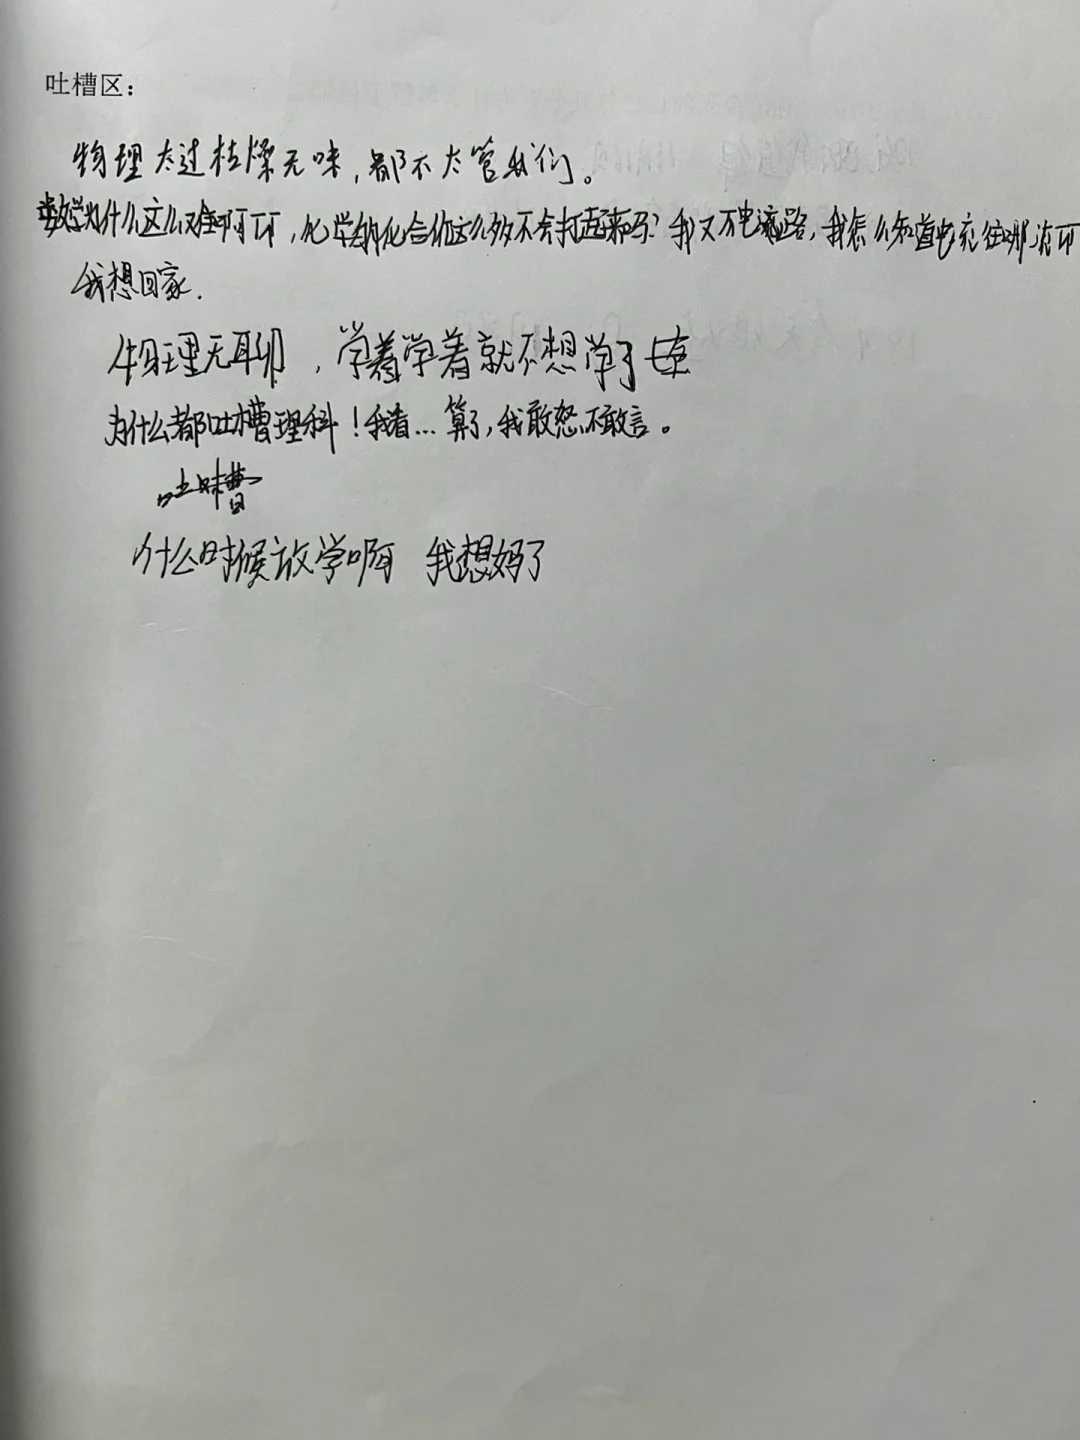 吐槽区：
物理太过枯燥无味，都不太管我们。
数学为什么这么难啊，化学的化合价这么多不会打起来吗？我又不是电路，我怎么知道电流往哪流
我想回家.
物理无聊，学着学着就不想学了
为什么都吐槽理科！我看…算了，我敢怒不敢言。
吐槽
什么时候放学啊 我想妈了